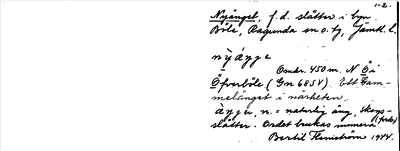 1-2.
Nyänget, f.d. slåtter i byn
Böle, Ragunda sn o. tg, Jämtl. l.
nỳáŋge
Omkr. 450 m. N Ö i
Öfverböle (Gm 685V). Ett Gam-
melänget i närheten.
àŋge, n. = naturlig äng, skogs-
slåtter. Ordet brukas numera
Bertil Flemström 1944.